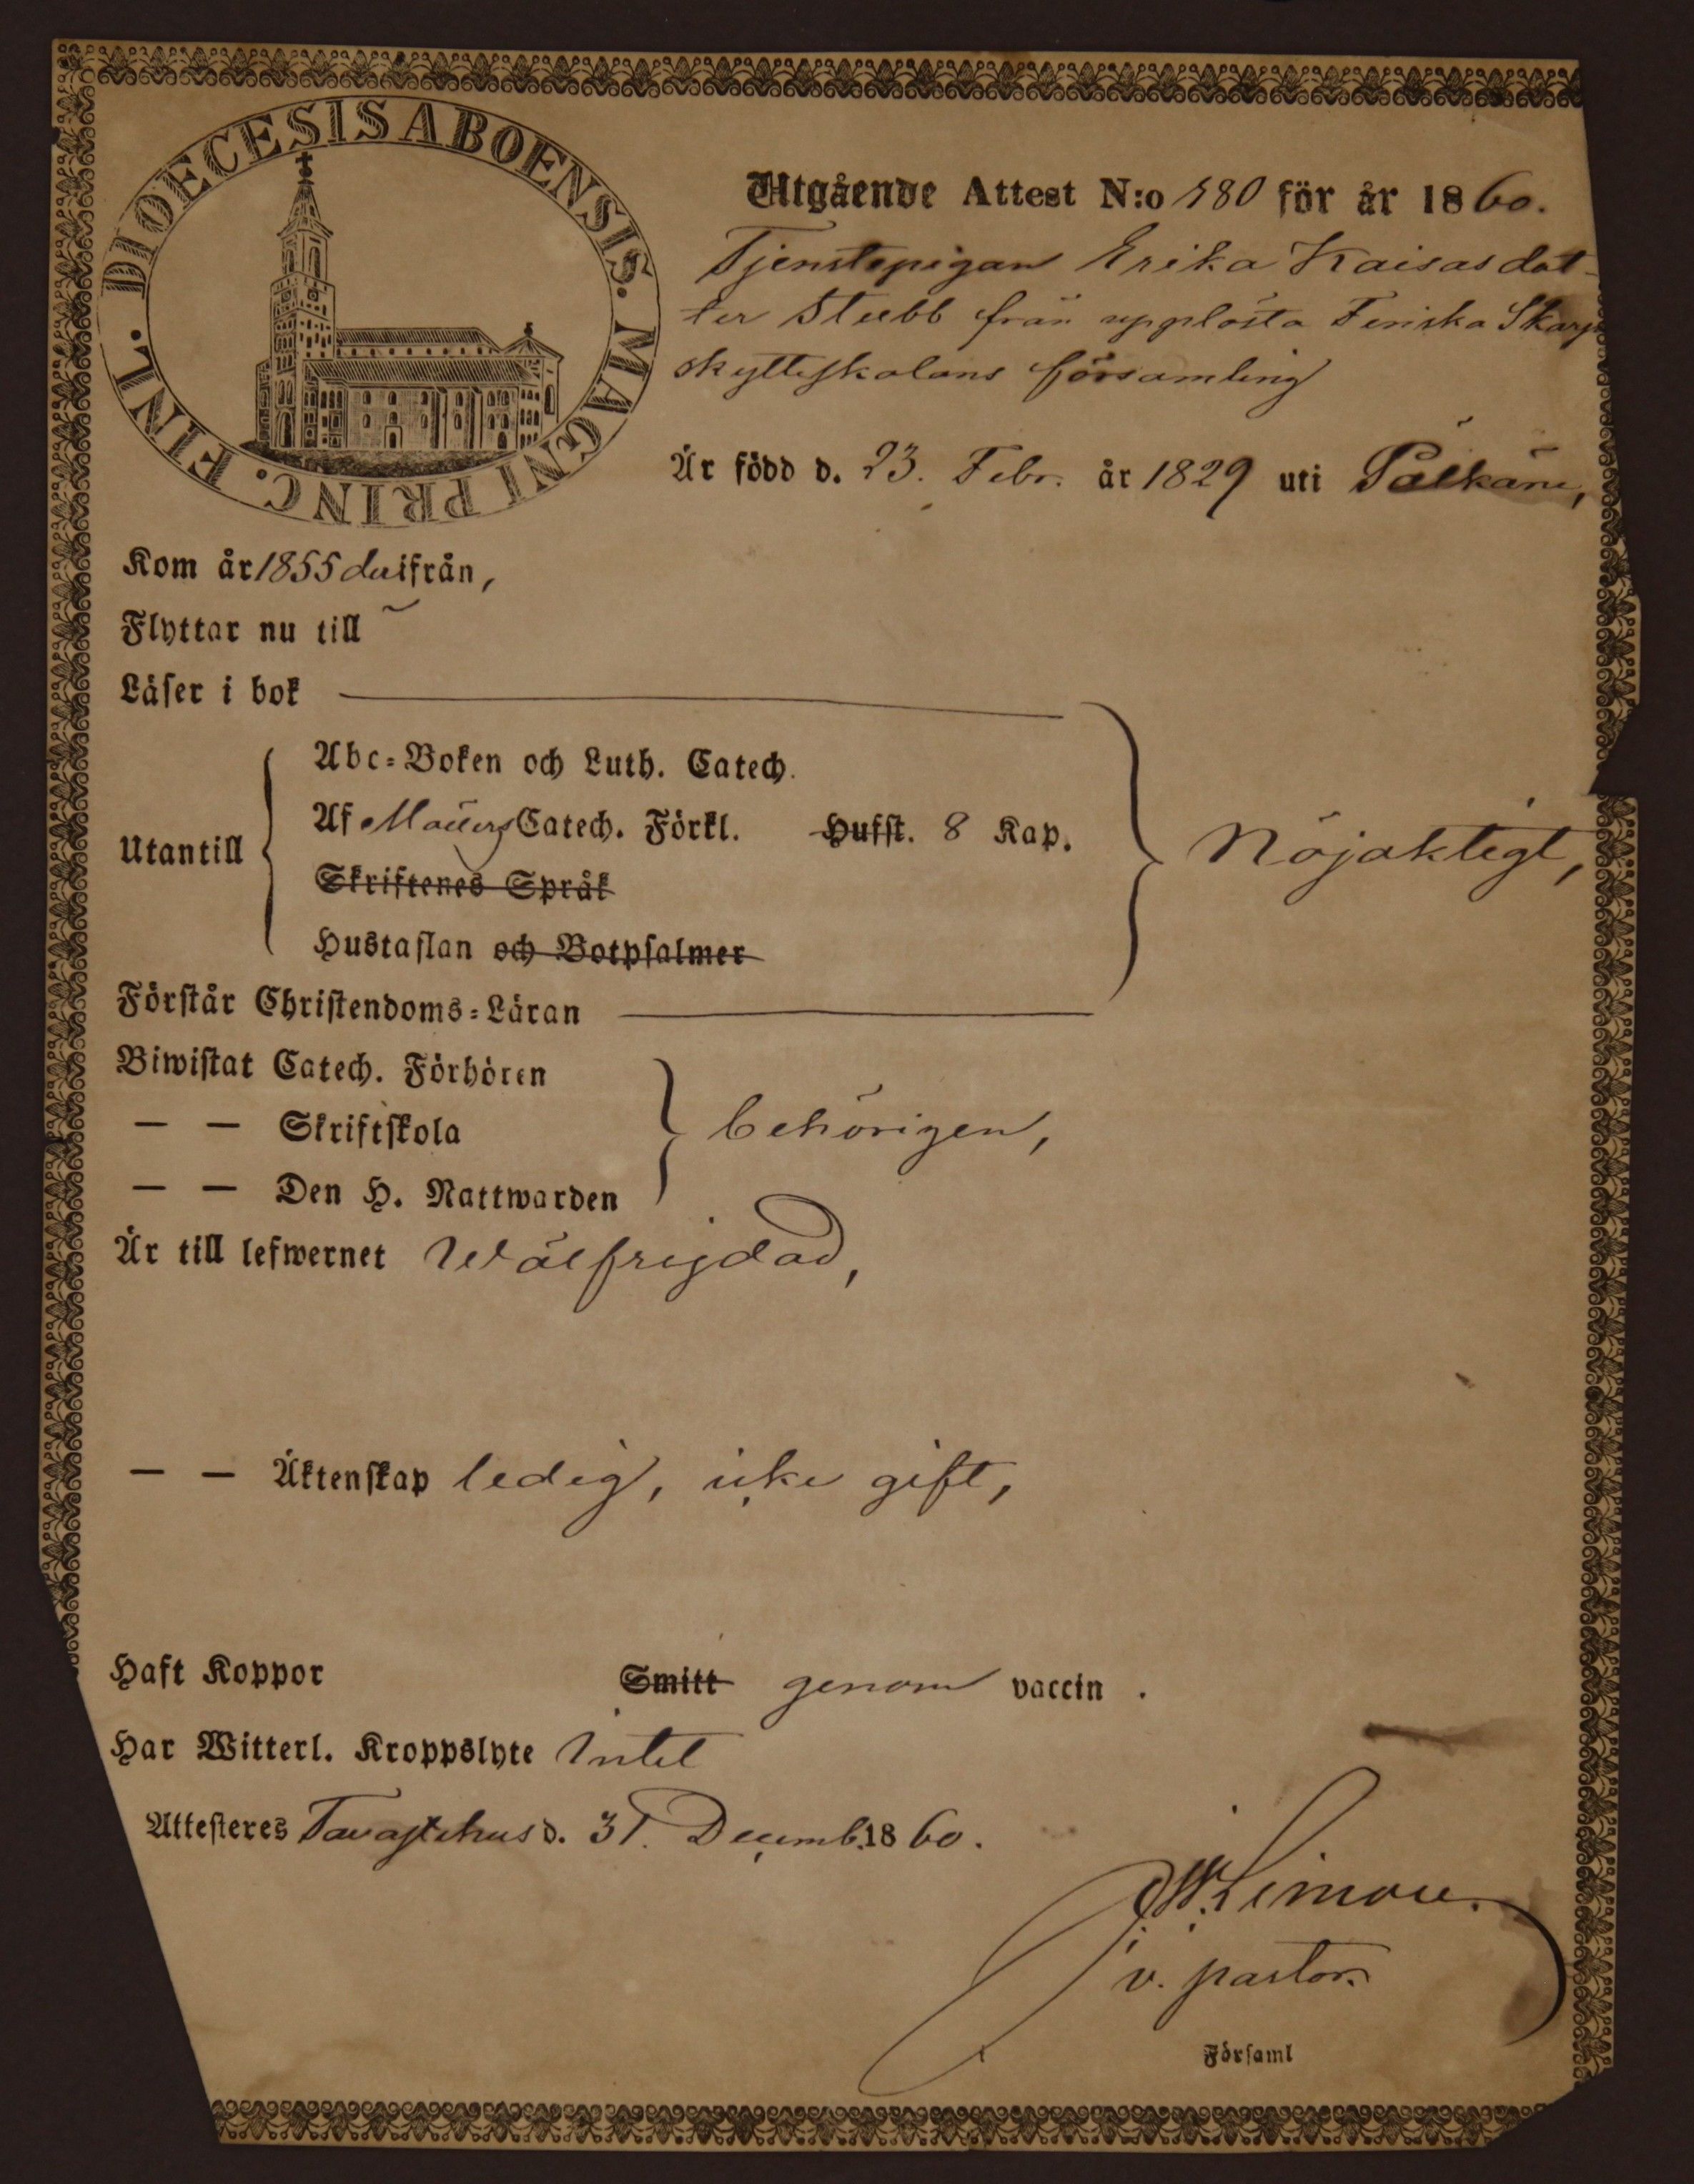 DIOECESIS ABOENSIS. MAGNI PRINC. FINL.
Utgående Attest N:o 180 för år 1860.
Tjenstepigan Erika Kaisasdot-
ter Stubb från upplösta Finska Skarp
skytteskolans församling
Är född d. 23. Febr. år 1829 uti Pälkäne,
Kom år 1855 därifrån,
Flyttar nu till
Läser i bok
Abc-Boken och Luth. Catech.
Utantill
Af Catech. Förkl. Hufst. 8 Kap.
Nöjaktigt,
Skriftenes Språk
Hustaflan och Botpsalmer
Förstår Christendoms-Läran
Biwistat Catech. Förhören
— — Skriftskola
behörigen,
— — Den H. Nattwarden
Är till lefwernet Wälfrejdad,
— — Äktenskap ledig, icke gift,
Haft Koppor Smitt genom vaccin .
Har Witterl. Kroppslyte Intet
Attesteres Tavastehus d. 31. Decemb. 1860.
v. pastor.
Församl